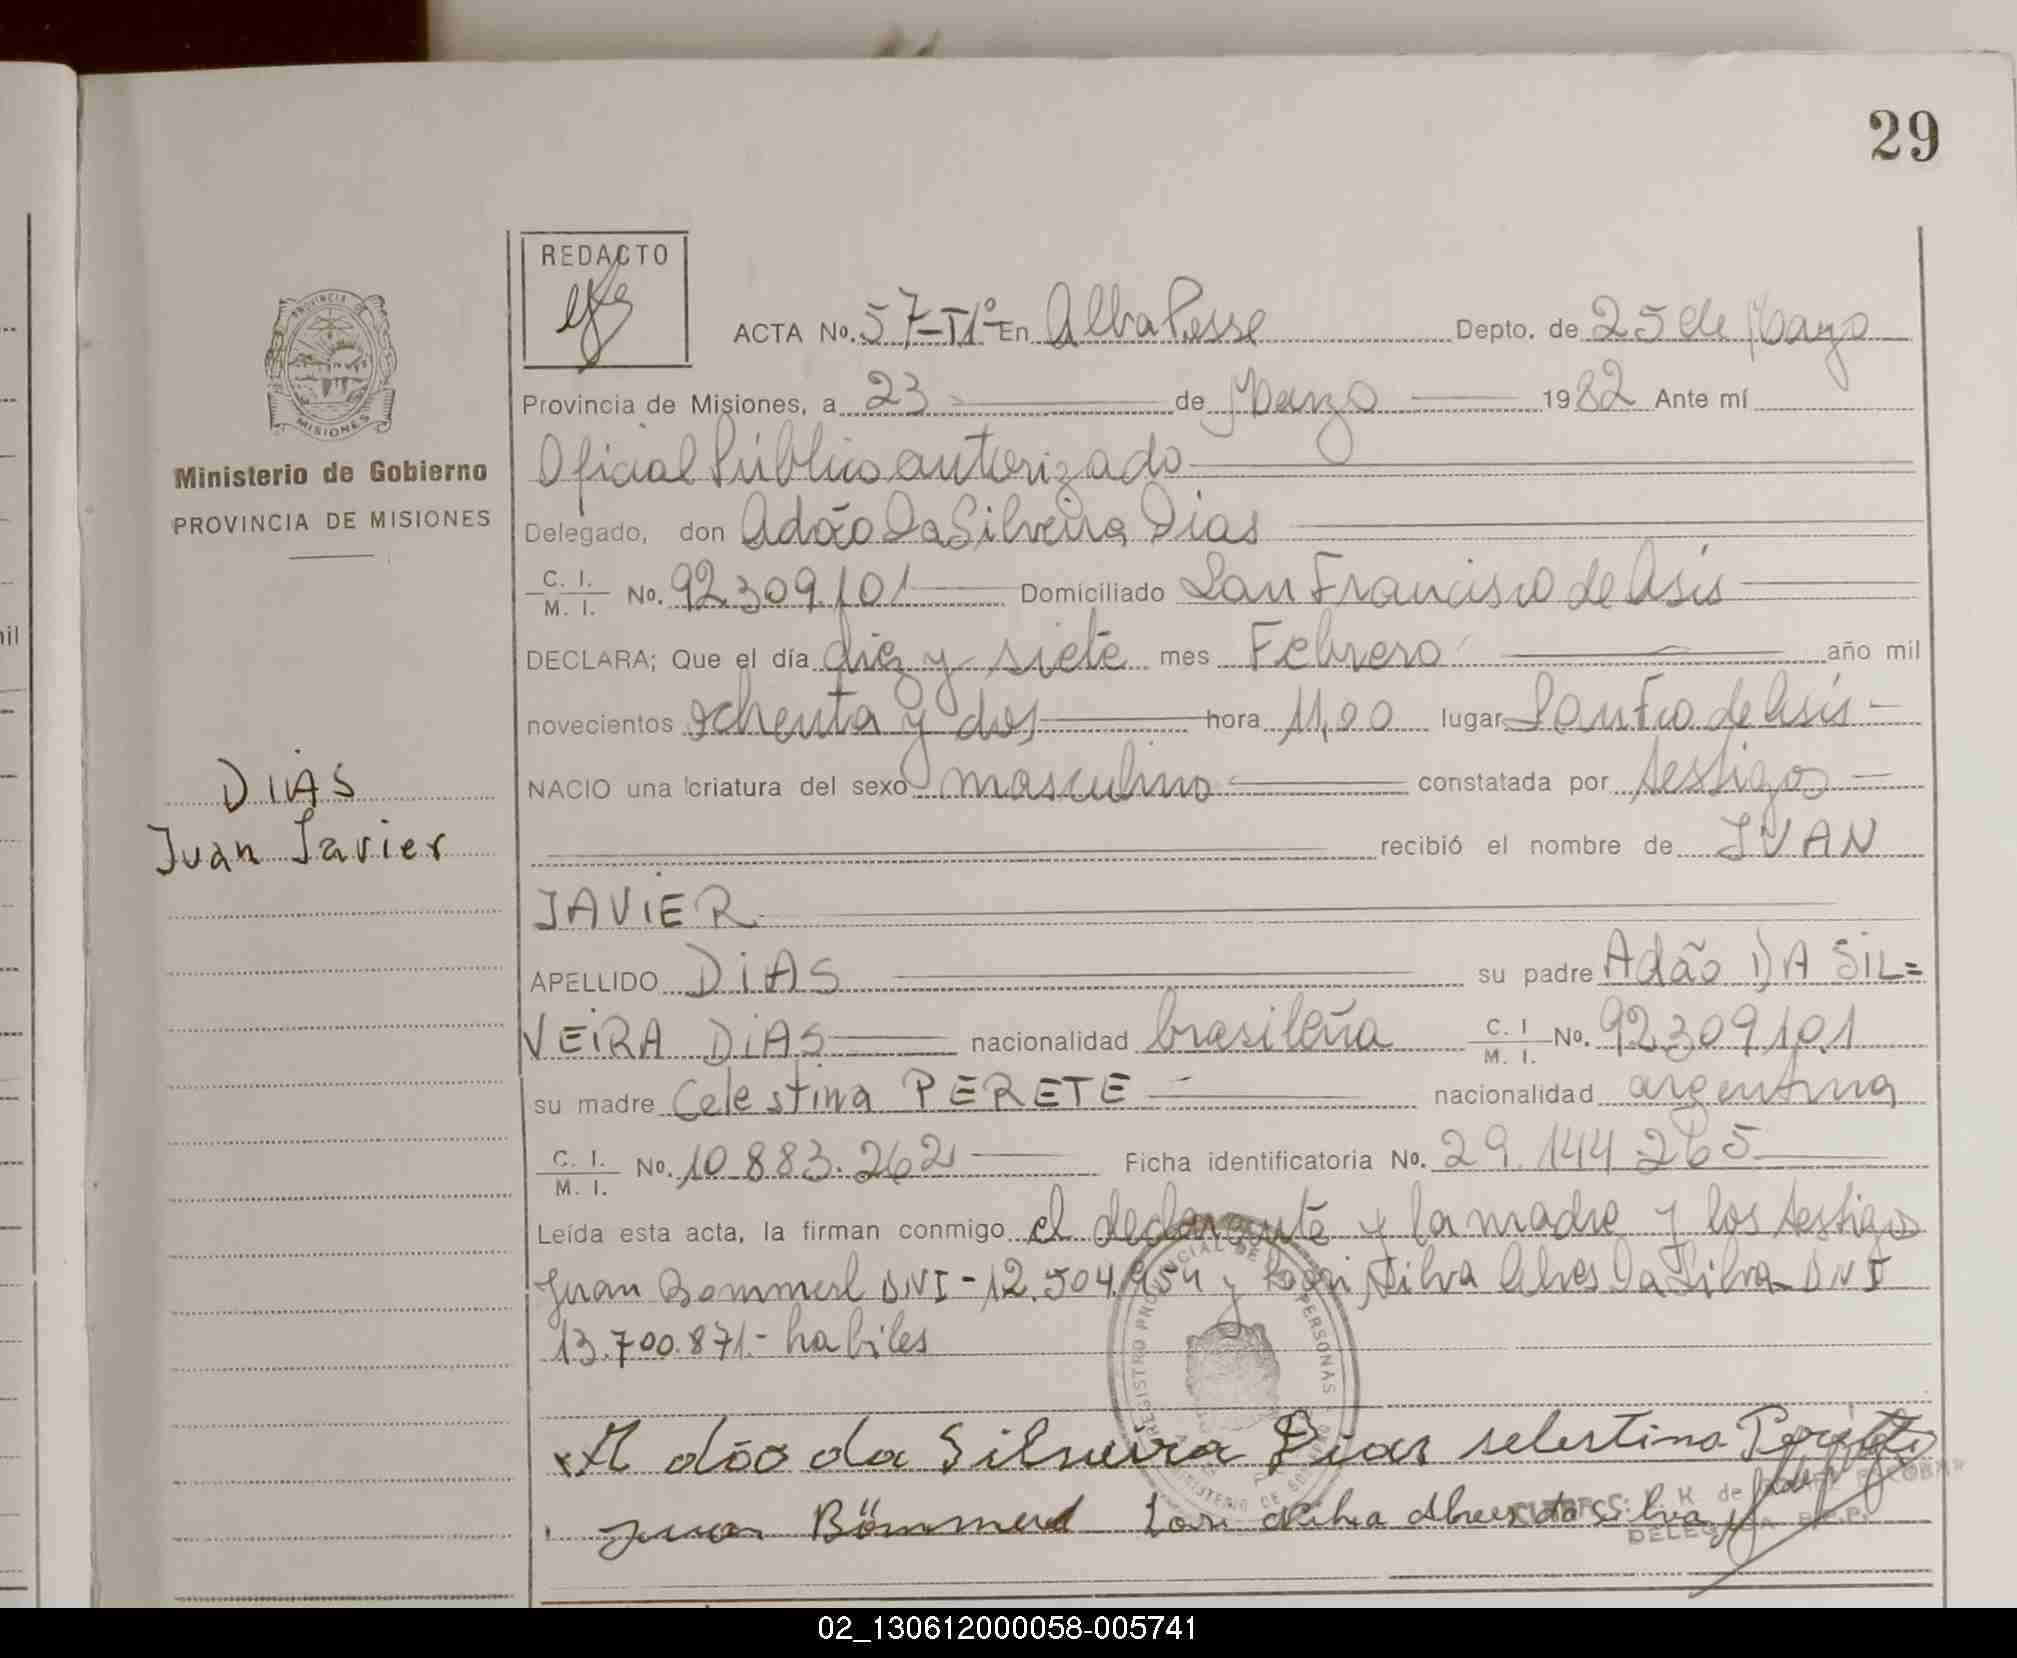 29
REDACTO
ACTA No. 57-T1º- En Alba Posse Depto. de 25 de Mayo
Provincia de Misiones, a 23 de Marzo 1982 Ante mí
Oficial Público autorizado
Delegado, don Adão Da Silveira Dias
C. I. / M. I. No. 92.309.101 Domiciliado San Francisco de Asís
DECLARA; Que el día diez y siete mes Febrero año mil
novecientos ochenta y dos hora 11,00 lugar San Fco de Asís -
NACIO una criatura del sexo masculino constatada por testigos
recibió el nombre de JUAN
JAVIER
APELLIDO DIAS su padre Adão DA SIL=
VEIRA DIAS nacionalidad brasileña C. I / M. I. No. 92.309.101
su madre Celestina PERETE nacionalidad argentina
C. I. / M. I. No. 10.883.262 Ficha identificatoria No. 29.144.265
Leída esta acta, la firman conmigo el declarante y la madre y los testigos
Juan Bommerl DNI-12.504.954 y Silva Alves Da Silva-DNI
13.700.871.- habiles
Adão da Silveira Dias selestina
juan Bömmerl Silva Alves da Silva
DELEGADA
PROVINCIA DE
MISIONES
Ministerio de Gobierno
PROVINCIA DE MISIONES
DIAS
Juan Javier
REGISTRO PROVINCIAL DE PERSONAS
MINISTERIO DE GOBIERNO
nil
02_130612000058-005741